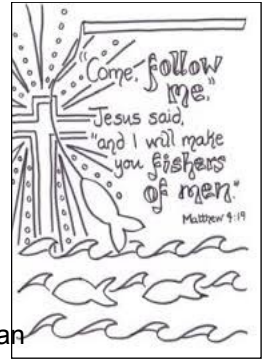 "Come, follow
me,"
Jesus said,
"and I will make
you fishers
of men."
Matthew 4:19
an